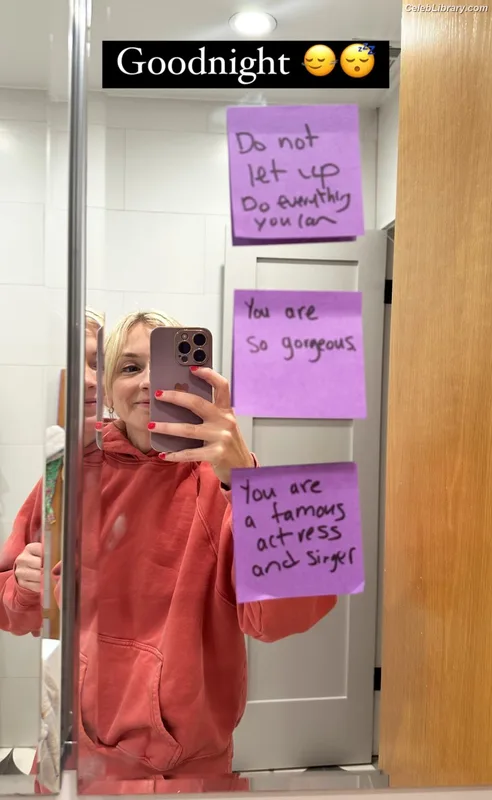 CelebLibrary.com
Goodnight 😌😴
Do not
let up
Do everything
you can
You are
so gorgeous.
You are
a famous
actress
and singer